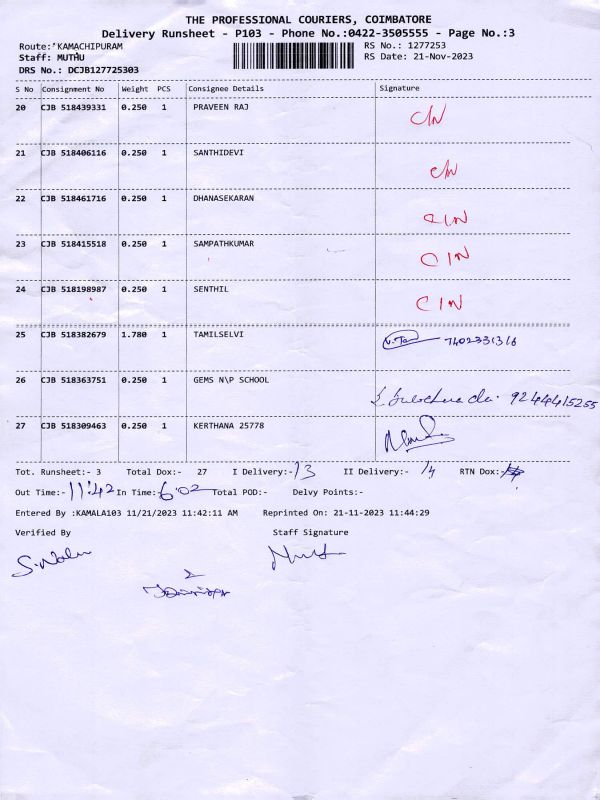 THE PROFESSIONAL COURIERS, COIMBATORE
Delivery Runsheet - P103 - Phone No.:0422-3505555 - Page No.:3
Route:'KAMACHIPURAM RS No.: 1277253
Staff: MUTHU RS Date: 21-Nov-2023
DRS No.: DCJB127725303
S No Consignment No Weight PCS Consignee Details Signature
20 CJB 518439331 0.250 1 PRAVEEN RAJ C/N
21 CJB 518406116 0.250 1 SANTHIDEVI C/N
22 CJB 518461716 0.250 1 DHANASEKARAN C/N
23 CJB 518415518 0.250 1 SAMPATHKUMAR C/N
24 CJB 518198987 0.250 1 SENTHIL C/N
25 CJB 518382679 1.780 1 TAMILSELVI 7402331316
26 CJB 518363751 0.250 1 GEMS N\P SCHOOL 9244415255
27 CJB 518309463 0.250 1 KERTHANA 25778
Tot. Runsheet:- 3 Total Dox:- 27 I Delivery:-13 II Delivery:- 14 RTN Dox:-
Out Time:-11:42 In Time:-6:02 Total POD:- Delvy Points:-
Entered By :KAMALA103 11/21/2023 11:42:11 AM Reprinted On: 21-11-2023 11:44:29
Verified By Staff Signature